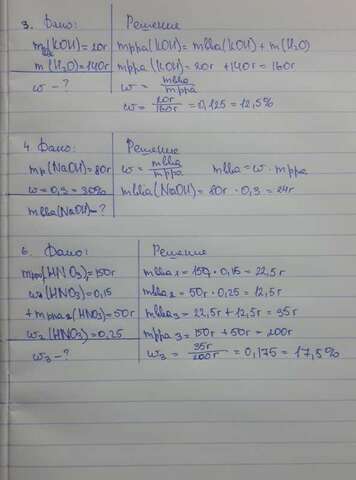 3. Дано:
m(KOH) = 20г
m(H₂O) = 140г
w - ?
Решение
mрра(KOH) = mв-ва(KOH) + m(H₂O)
mрра(KOH) = 20г + 140г = 160г
w = mв-ва/mрра
w = 20г/160г = 0,125 = 12,5%
4. Дано:
mр(NaOH) = 80г
w = 0,3 = 30%
mв-ва(NaOH) - ?
Решение
w = mв-ва/mрра mв-ва = w · mрра
mв-ва(NaOH) = 80г · 0,3 = 24г
6. Дано:
(HNO₃) = 150г
(HNO₃) = 0,15
+ (HNO₃) = 50г
w₂(HNO₃) = 0,25
w₃ - ?
Решение
mв-ва 1 = 150 · 0,15 = 22,5г
mв-ва 2 = 50г · 0,25 = 12,5г
mв-ва 3 = 22,5г + 12,5г = 35г
mрра 3 = 150г + 50г = 200г
w₃ = 35г/200г = 0,175 = 17,5%